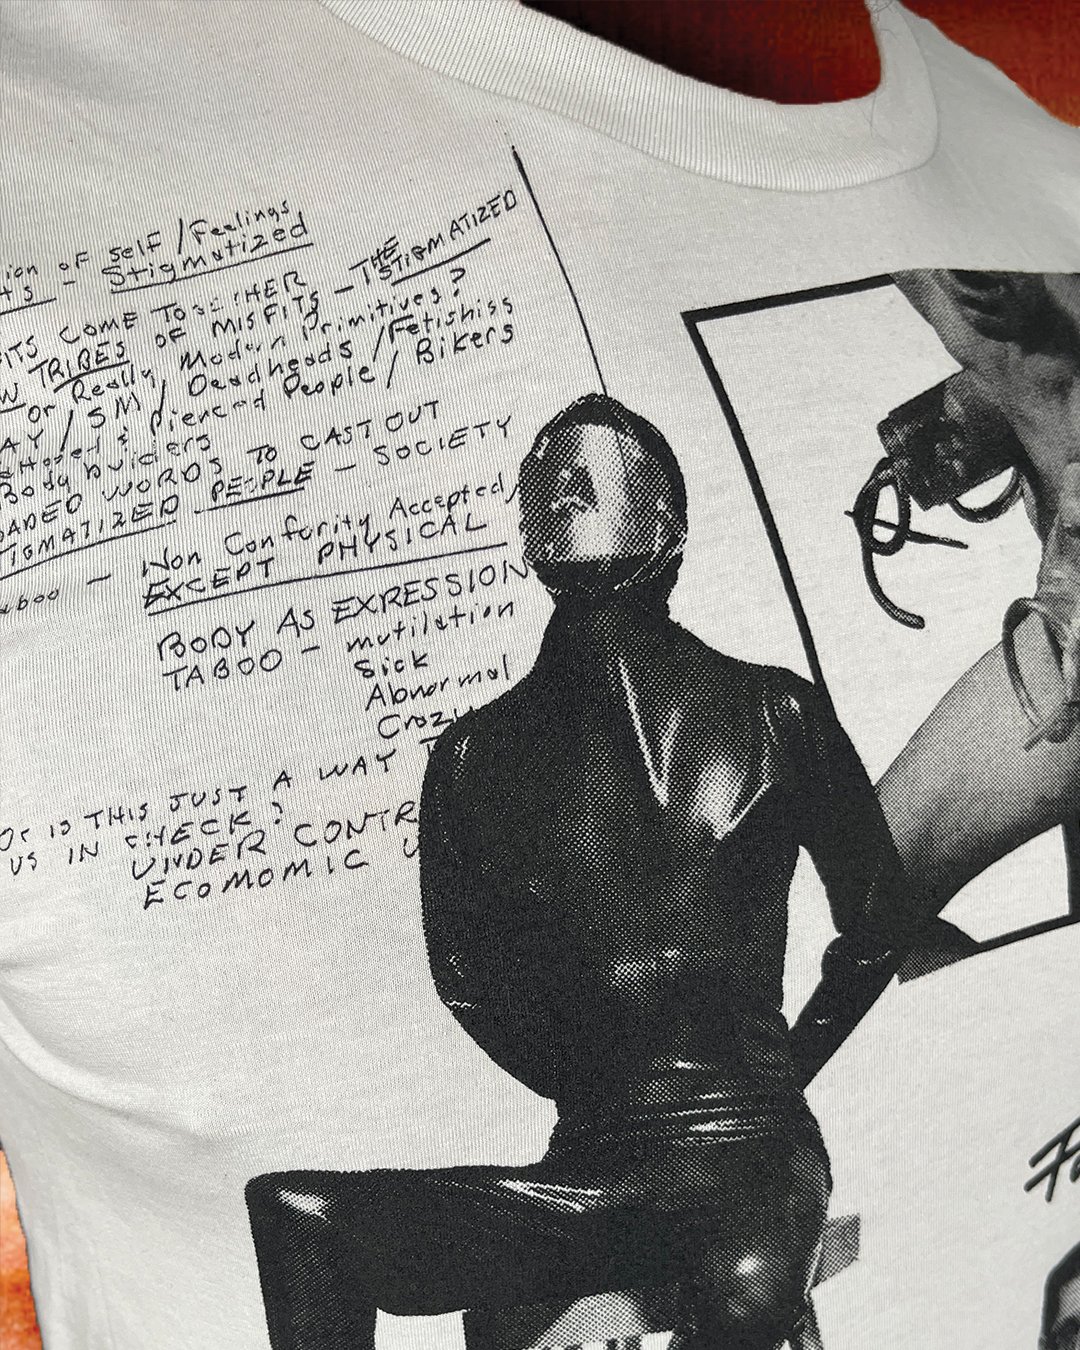 ion of self / Feelings
ts - Stigmatized
ITS COME TOGETHER
W TRIBES OF MISFITS - THE STIGMATIZED
or Really Modern Primitives?
AY / SM / Deadheads / Fetishiss
& Pierced People / Bikers
Body builders
OADED WORDS TO CAST OUT
TIGMATIZED PEOPLE - SOCIETY
aboo - Non Confority Accepted,
EXCEPT PHYSICAL
BODY AS EXPRESSION
TABOO - mutilation
Sick
Abnormal
Crazy
Or is THIS JUST A WAY T
US IN CHECK?
UNDER CONTR
ECOMOMIC U